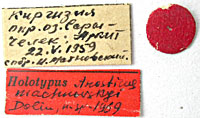 Киргизия
окр. оз. Сары-
Челек. Аркит
22.V.1959
собр. М. Мачновский.
Holotypus Anostirus
machnovskii
Dolin 1969